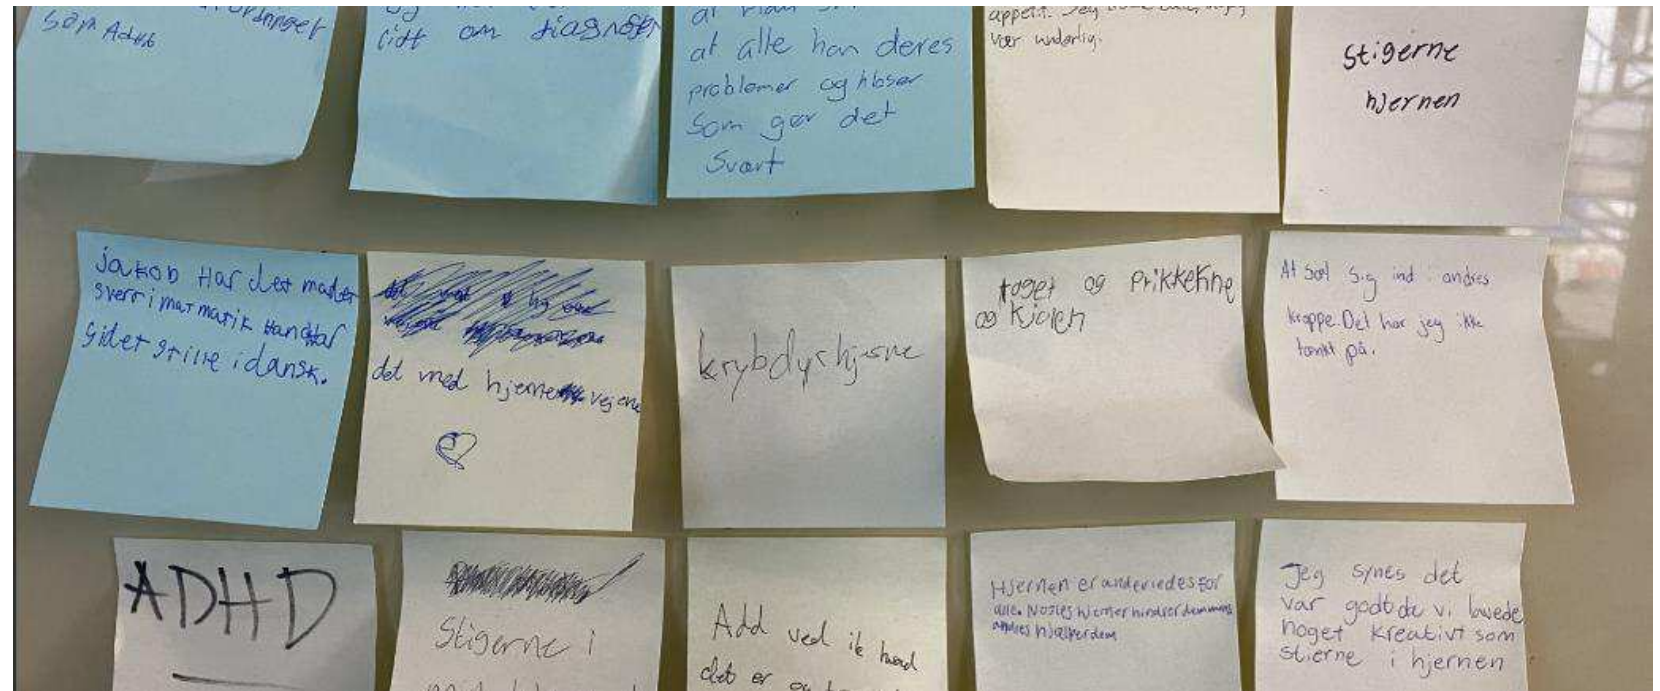 som Adhd
lidt om diagnoser
at alle han deres
problemer og hloser
som gør det
Svært
appetit. Jeg
vær underlig.
Stigerne
hjernen
jakob Har det
sverrimatmatik Han Har
Sidet Stille i dansk.
det med hjerne vejene
krybdyrhjerne
toget og Prikkerne
og Kjolen
At sæt sig ind i andres
kroppe. Det har jeg ikke
tænkt på.
ADHD
Stigerne i
Add ved ik hvad
det er og
Hjernen er anderledes for
alle. Nogles hjerner hindrer dem mens
andres hjælper dem
Jeg synes det
var godt da vi lavede
noget kreativt som
stierne i hjernen